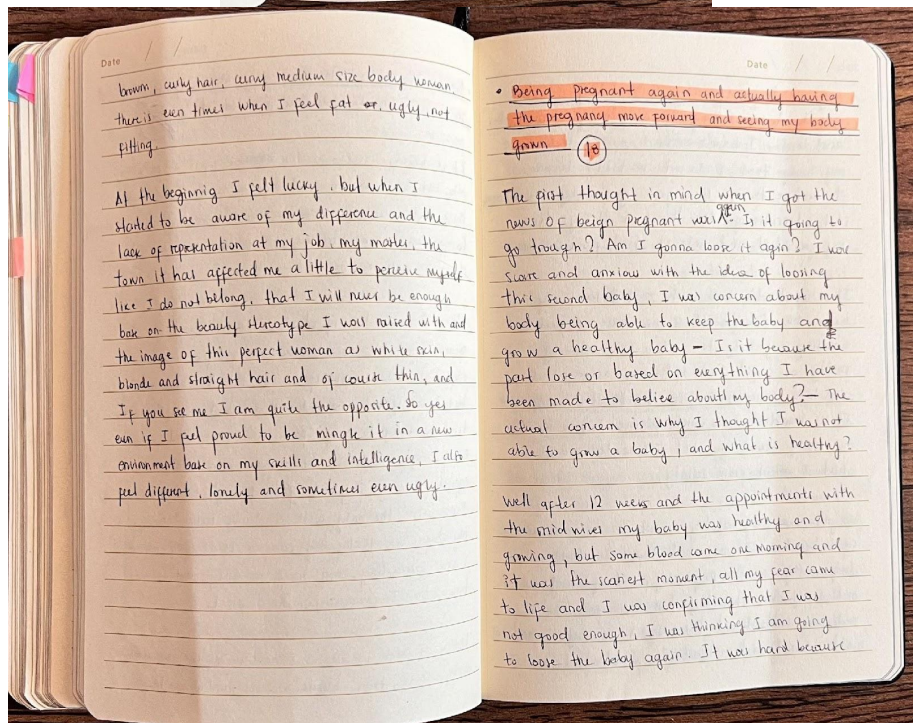 Date / /
brown, curly hair, curvy medium size body woman
there is even times when I feel fat or ugly, not
fitting.
At the beginnig I felt lucky, but when I
started to be aware of my difference and the
lack of representation at my job, my master, the
town it has affected me a little to perceive myself
like I do not belong, that I will never be enough
base on the beauty stereotype I was raised with and
the image of this perfect woman as white skin,
blonde and straight hair and of course thin, and
If you see me I am quite the opposite. So yes
even if I feel proud to be mingle it in a new
environment base on my skills and intelligence, I also
feel different, lonely and sometimes even ugly.
Date / /
• Being pregnant again and actually having
the pregnancy move forward and seeing my body
grown 18
The first thought in mind when I got the
news of beign pregnant again was: Is it going to
go trough? Am I gonna loose it agin? I was
scare and anxiow with the idea of loosing
this second baby, I was concern about my
body being able to keep the baby and
grow a healthy baby — Is it because the
past lose or based on everything I have
been made to believe about my body? — The
actual concern is why I thought I was not
able to grow a baby, and what is healthy?
Well after 12 weeks and the appointments with
the midwives my baby was healthy and
growing, but some blood came one morning and
it was the scariest moment, all my fear came
to life and I was confirming that I was
not good enough, I was thinking I am going
to loose the baby again. It was hard because